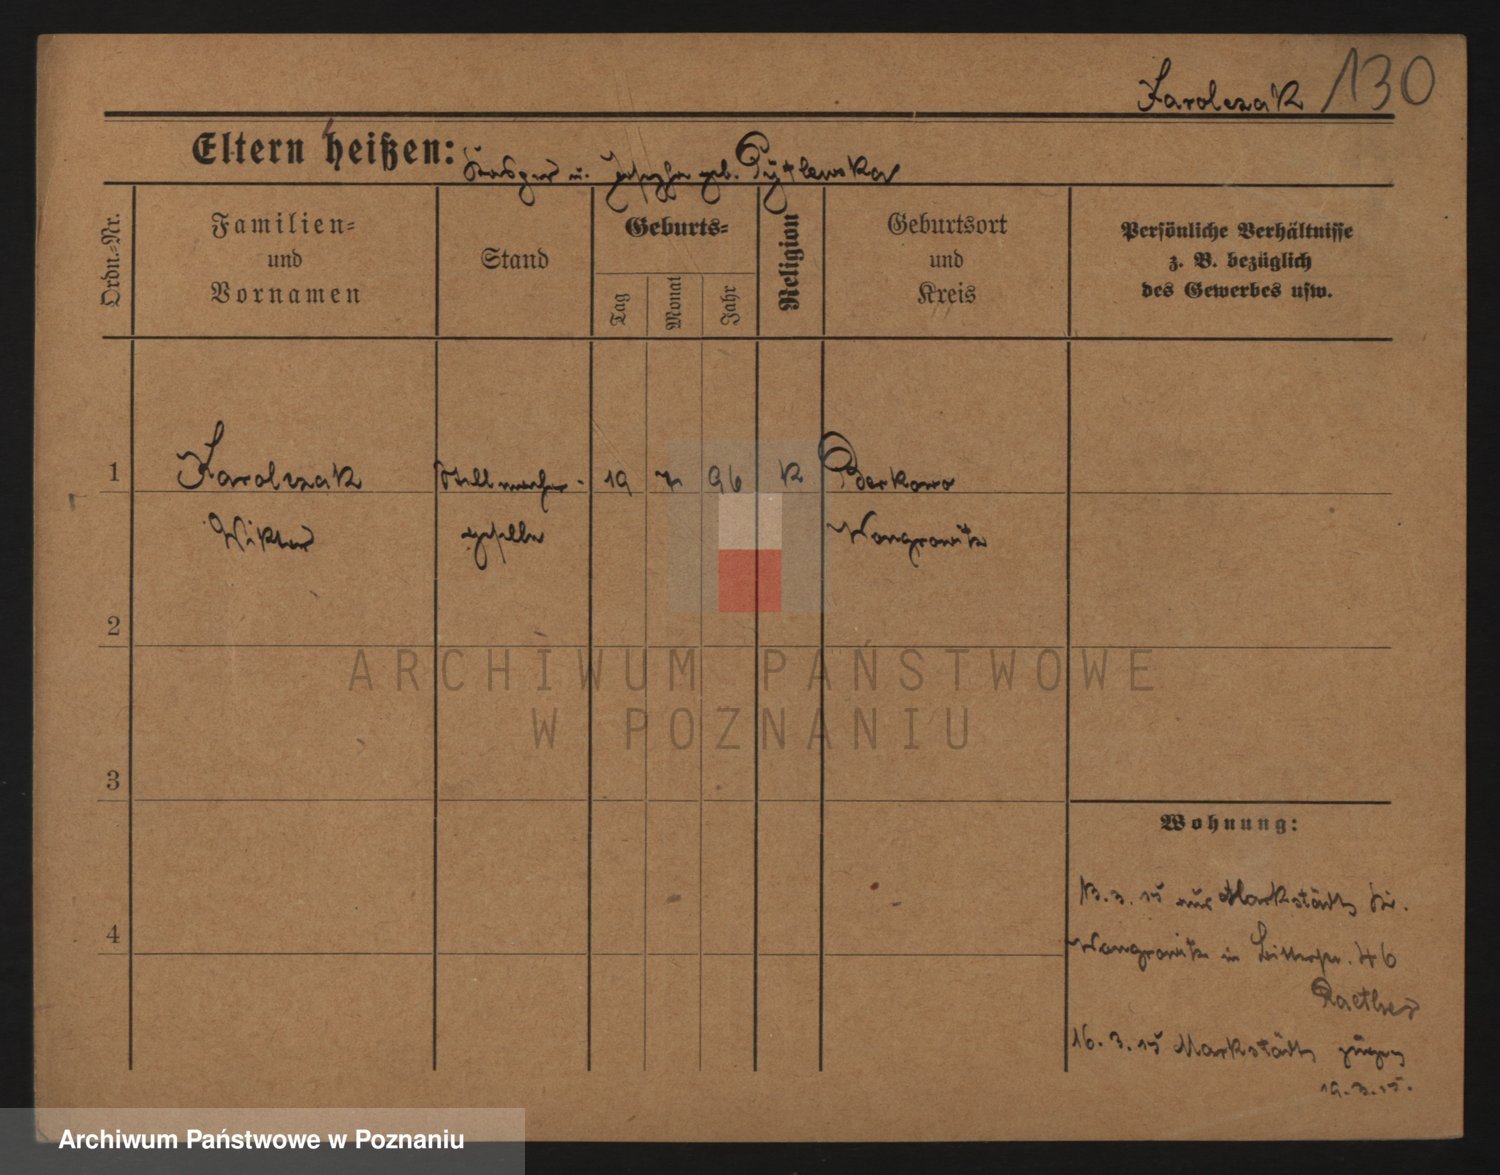 Karolczak 130
Eltern heißen: Kasper u. Josepha geb. Pytlewska
Ordn.-Nr.
Familien-
und
Vornamen
Stand
Geburts-
Tag
Monat
Jahr
Religion
Geburtsort
und
Kreis
Persönliche Verhältnisse
z. B. bezüglich
des Gewerbes usw.
1 Karolczak Stellmacher- 19 7 96 K Borkowo
Wiktor geselle Wongrowitz
2
3
4
Wohnung:
13.3.15 aus Markstädt Kr.
Wongrowitz in Bitterstr. 46
Raether
16.3.15 Markstädt
19.3.15.
ARCHIWUM PAŃSTWOWE
W POZNANIU
Archiwum Państwowe w Poznaniu